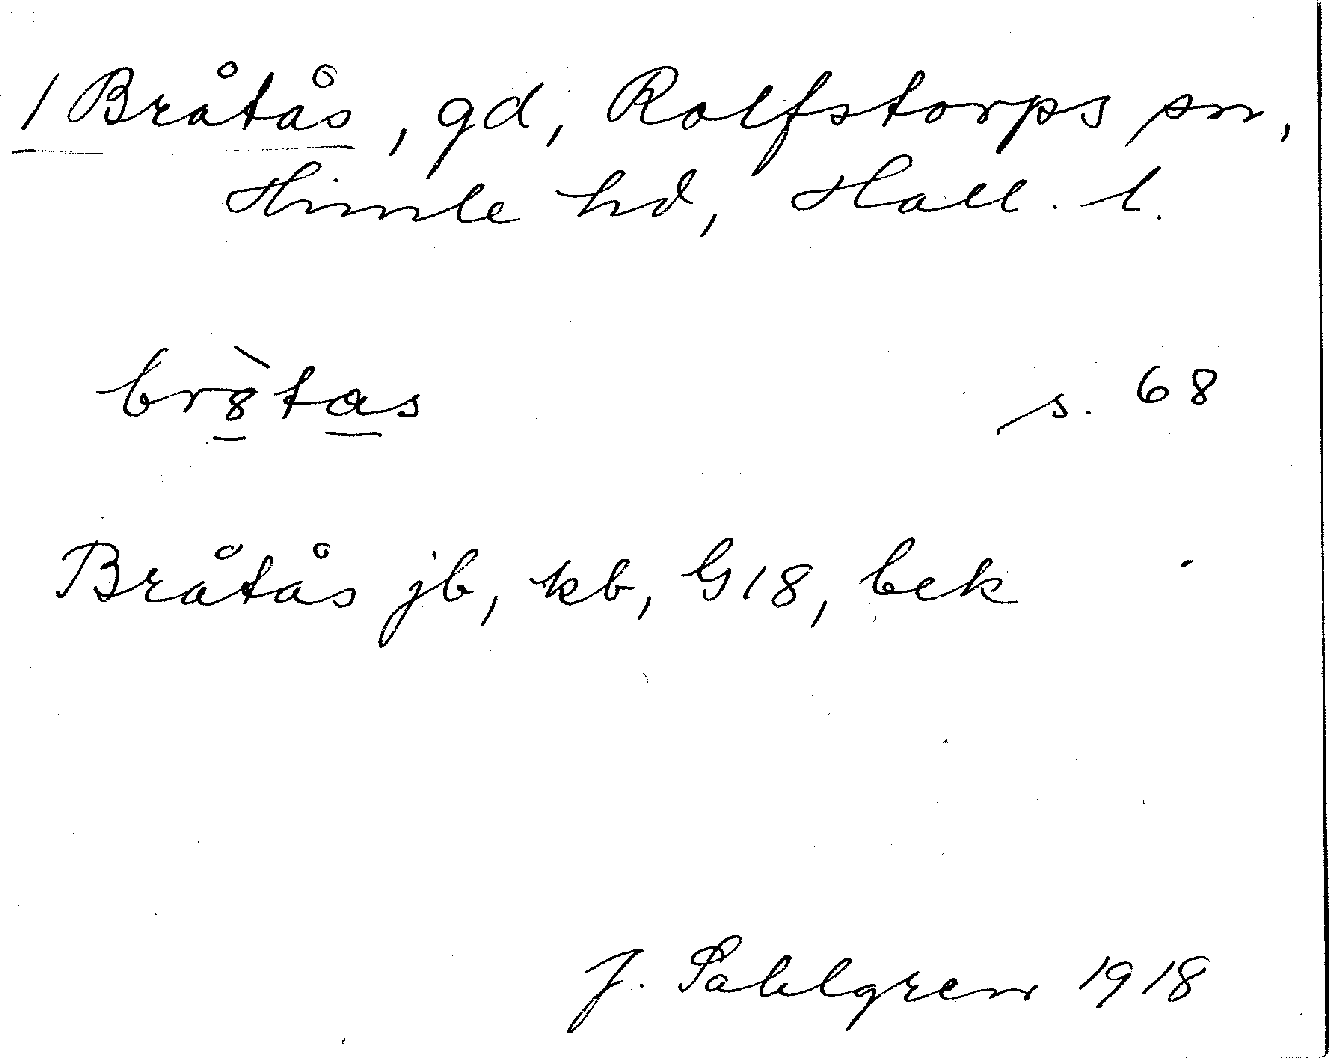 1 Bråtås, gd, Rolfstorps sn,
Himle hd, Hall. l.
br8̀tas s. 68
Bråtås jb, kb, G18, bek
J. Sahlgren 1918